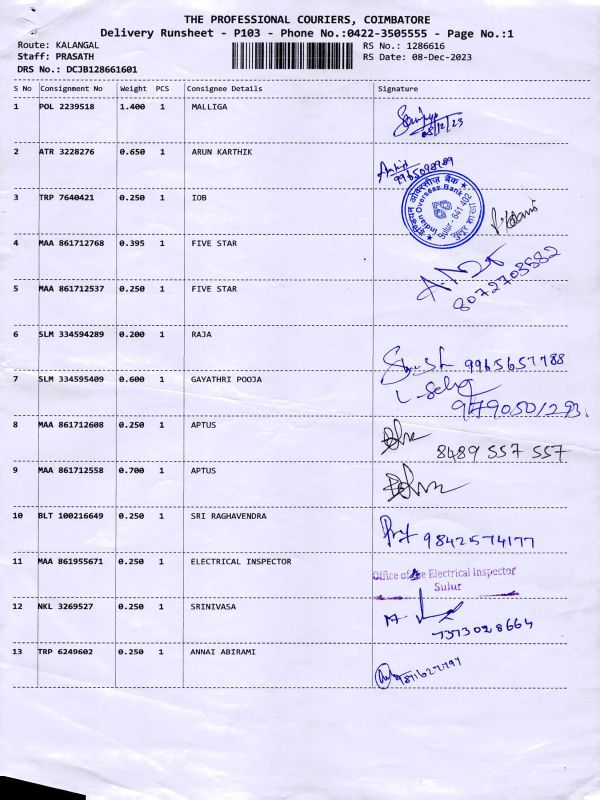 THE PROFESSIONAL COURIERS, COIMBATORE
Delivery Runsheet - P103 - Phone No.:0422-3505555 - Page No.:1
Route: KALANGAL
Staff: PRASATH
DRS No.: DCJB128661601
RS No.: 1286616
RS Date: 08-Dec-2023
S No Consignment No Weight PCS Consignee Details Signature
1 POL 2239518 1.400 1 MALLIGA
2 ATR 3228276 0.650 1 ARUN KARTHIK
3 TRP 7640421 0.250 1 IOB
इण्डियन ओवरसीज़ बैंक
Indian Overseas Bank
Sulur - 641 402
4 MAA 861712768 0.395 1 FIVE STAR
8072703582
5 MAA 861712537 0.250 1 FIVE STAR
6 SLM 334594289 0.200 1 RAJA 9965657788
7 SLM 334595409 0.600 1 GAYATHRI POOJA
8 MAA 861712608 0.250 1 APTUS 8489 557 557
9 MAA 861712558 0.700 1 APTUS
10 BLT 100216649 0.250 1 SRI RAGHAVENDRA 9842574177
11 MAA 861955671 0.250 1 ELECTRICAL INSPECTOR Office of the Electrical Inspector
Sulur
12 NKL 3269527 0.250 1 SRINIVASA
7373028664
13 TRP 6249602 0.250 1 ANNAI ABIRAMI